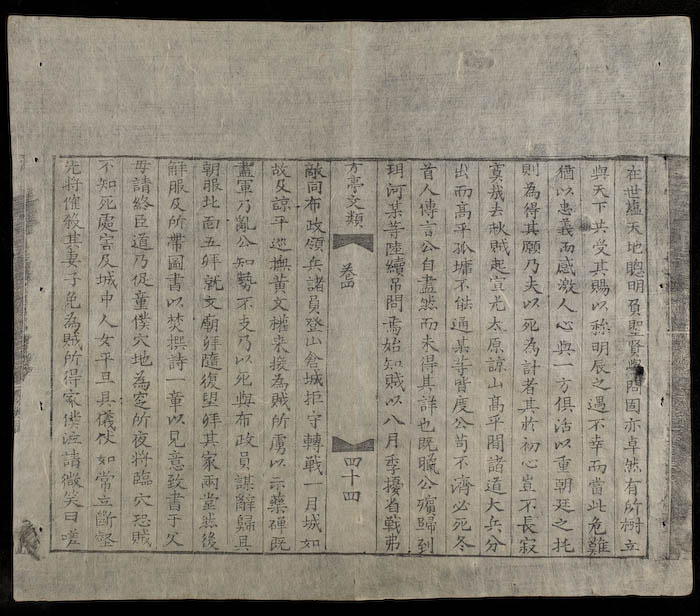 在世爐天地聰明負聖賢學問固亦卓然有所樹立
與天下共受其賜以黍明辰之遇不幸而當此危難
猶以忠義而感激人心與一方俱活以重朝廷之托
則為得其願乃夫以死為計者其於初心豈不長寂
寞哉去秋賊起宣光太原諒山髙平間諸道大兵分
出而髙平孤墉不能通某等皆度公苟不濟必死冬
首人傳言公自盡然而未得其詳也既臘公殯歸到
珥河某等陸續吊問焉始知賊以八月季擾省戰弗
方亭文類 卷四 四十四
敵同布政領兵諸員登山倉城拒守轉戰一月城如
故及諒平巡撫黃文權来援為賊所虜以示藥磾既
盡軍乃亂公知勢不支乃以死與布政員謀辭歸具
朝服北面五拜就文廟拜隨復望拜其家兩堂然後
解服及所帶圖書以焚撰詩一章以見意致書于父
母請終臣道乃促童僕穴地為窆所夜將臨穴恐賊
不知死處害及城中人女平旦具儀仗如常立斷壑
先將催殺其妻子免為賊所得家僕泣請微笑曰嗟